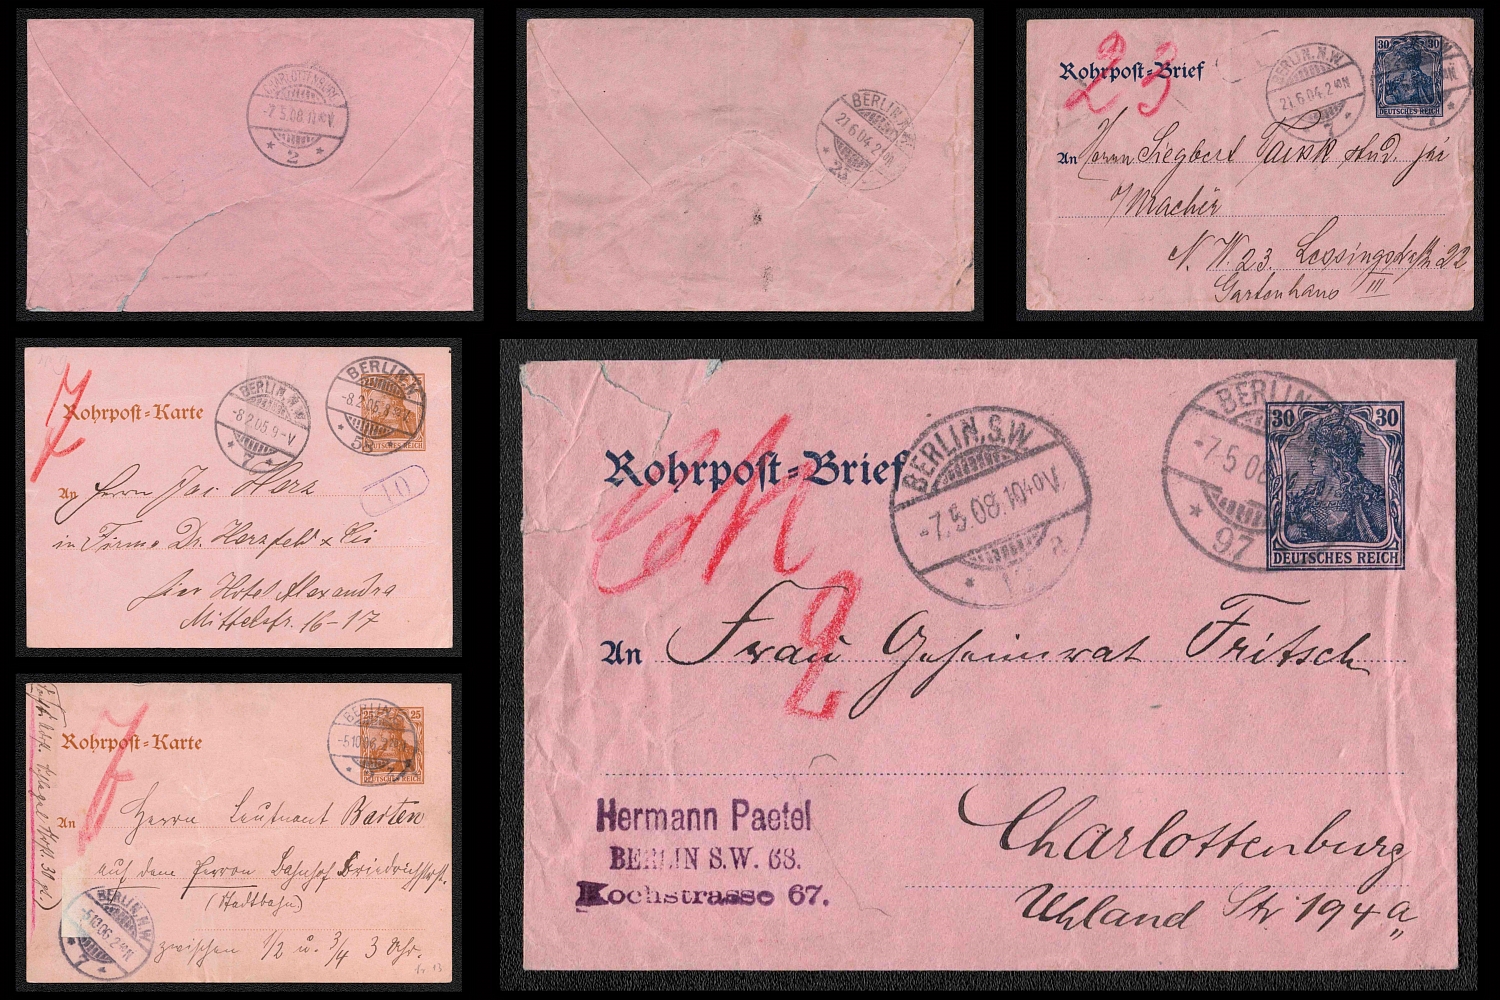 CHARLOTTENBURG
-7.5.08.11
* 2 *
BERLIN
21.6.04.2
23
Rohrpost-Brief
23
BERLIN, N.W.
21.6.04.2 40N
7
30 30
DEUTSCHES REICH
An Herrn Siegbert stud. jur
N.W. 23. Lessingstraße 22
Gartenhaus III
7
Rohrpost-Karte
BERLIN, N.W.
-8.2.05.9-V
* 7 *
BERLIN, N
-8.2.05.8
* 58 *
DEUTSCHES REICH
10
An Herrn Jac Herz
in Firma Dr. Herzfeld & Cie
hier Hotel Alexandra
Mittelstr. 16-17
7
Rohrpost-Karte
BERLIN
-5.10.06.2
25 25
DEUTSCHES REICH
An Herrn Leutnant Basten
auf dem Perron Bahnhof Friedrichstr.
(Stadtbahn)
zwischen 1/2 u. 3/4 3 Uhr.
BERLIN, N.W.
-5.10.06.2
* 7 *
Rohrpost-Brief
Ch 2
BERLIN, S.W.
-7.5.08.10 40V
BERLIN
-7.5.08
* 97
30 30
DEUTSCHES REICH
An Frau Geheimrat Fritsch
Charlottenburg
Uhland Str. 194a
Hermann Paetel
BERLIN S.W. 68.
Kochstrasse 67.